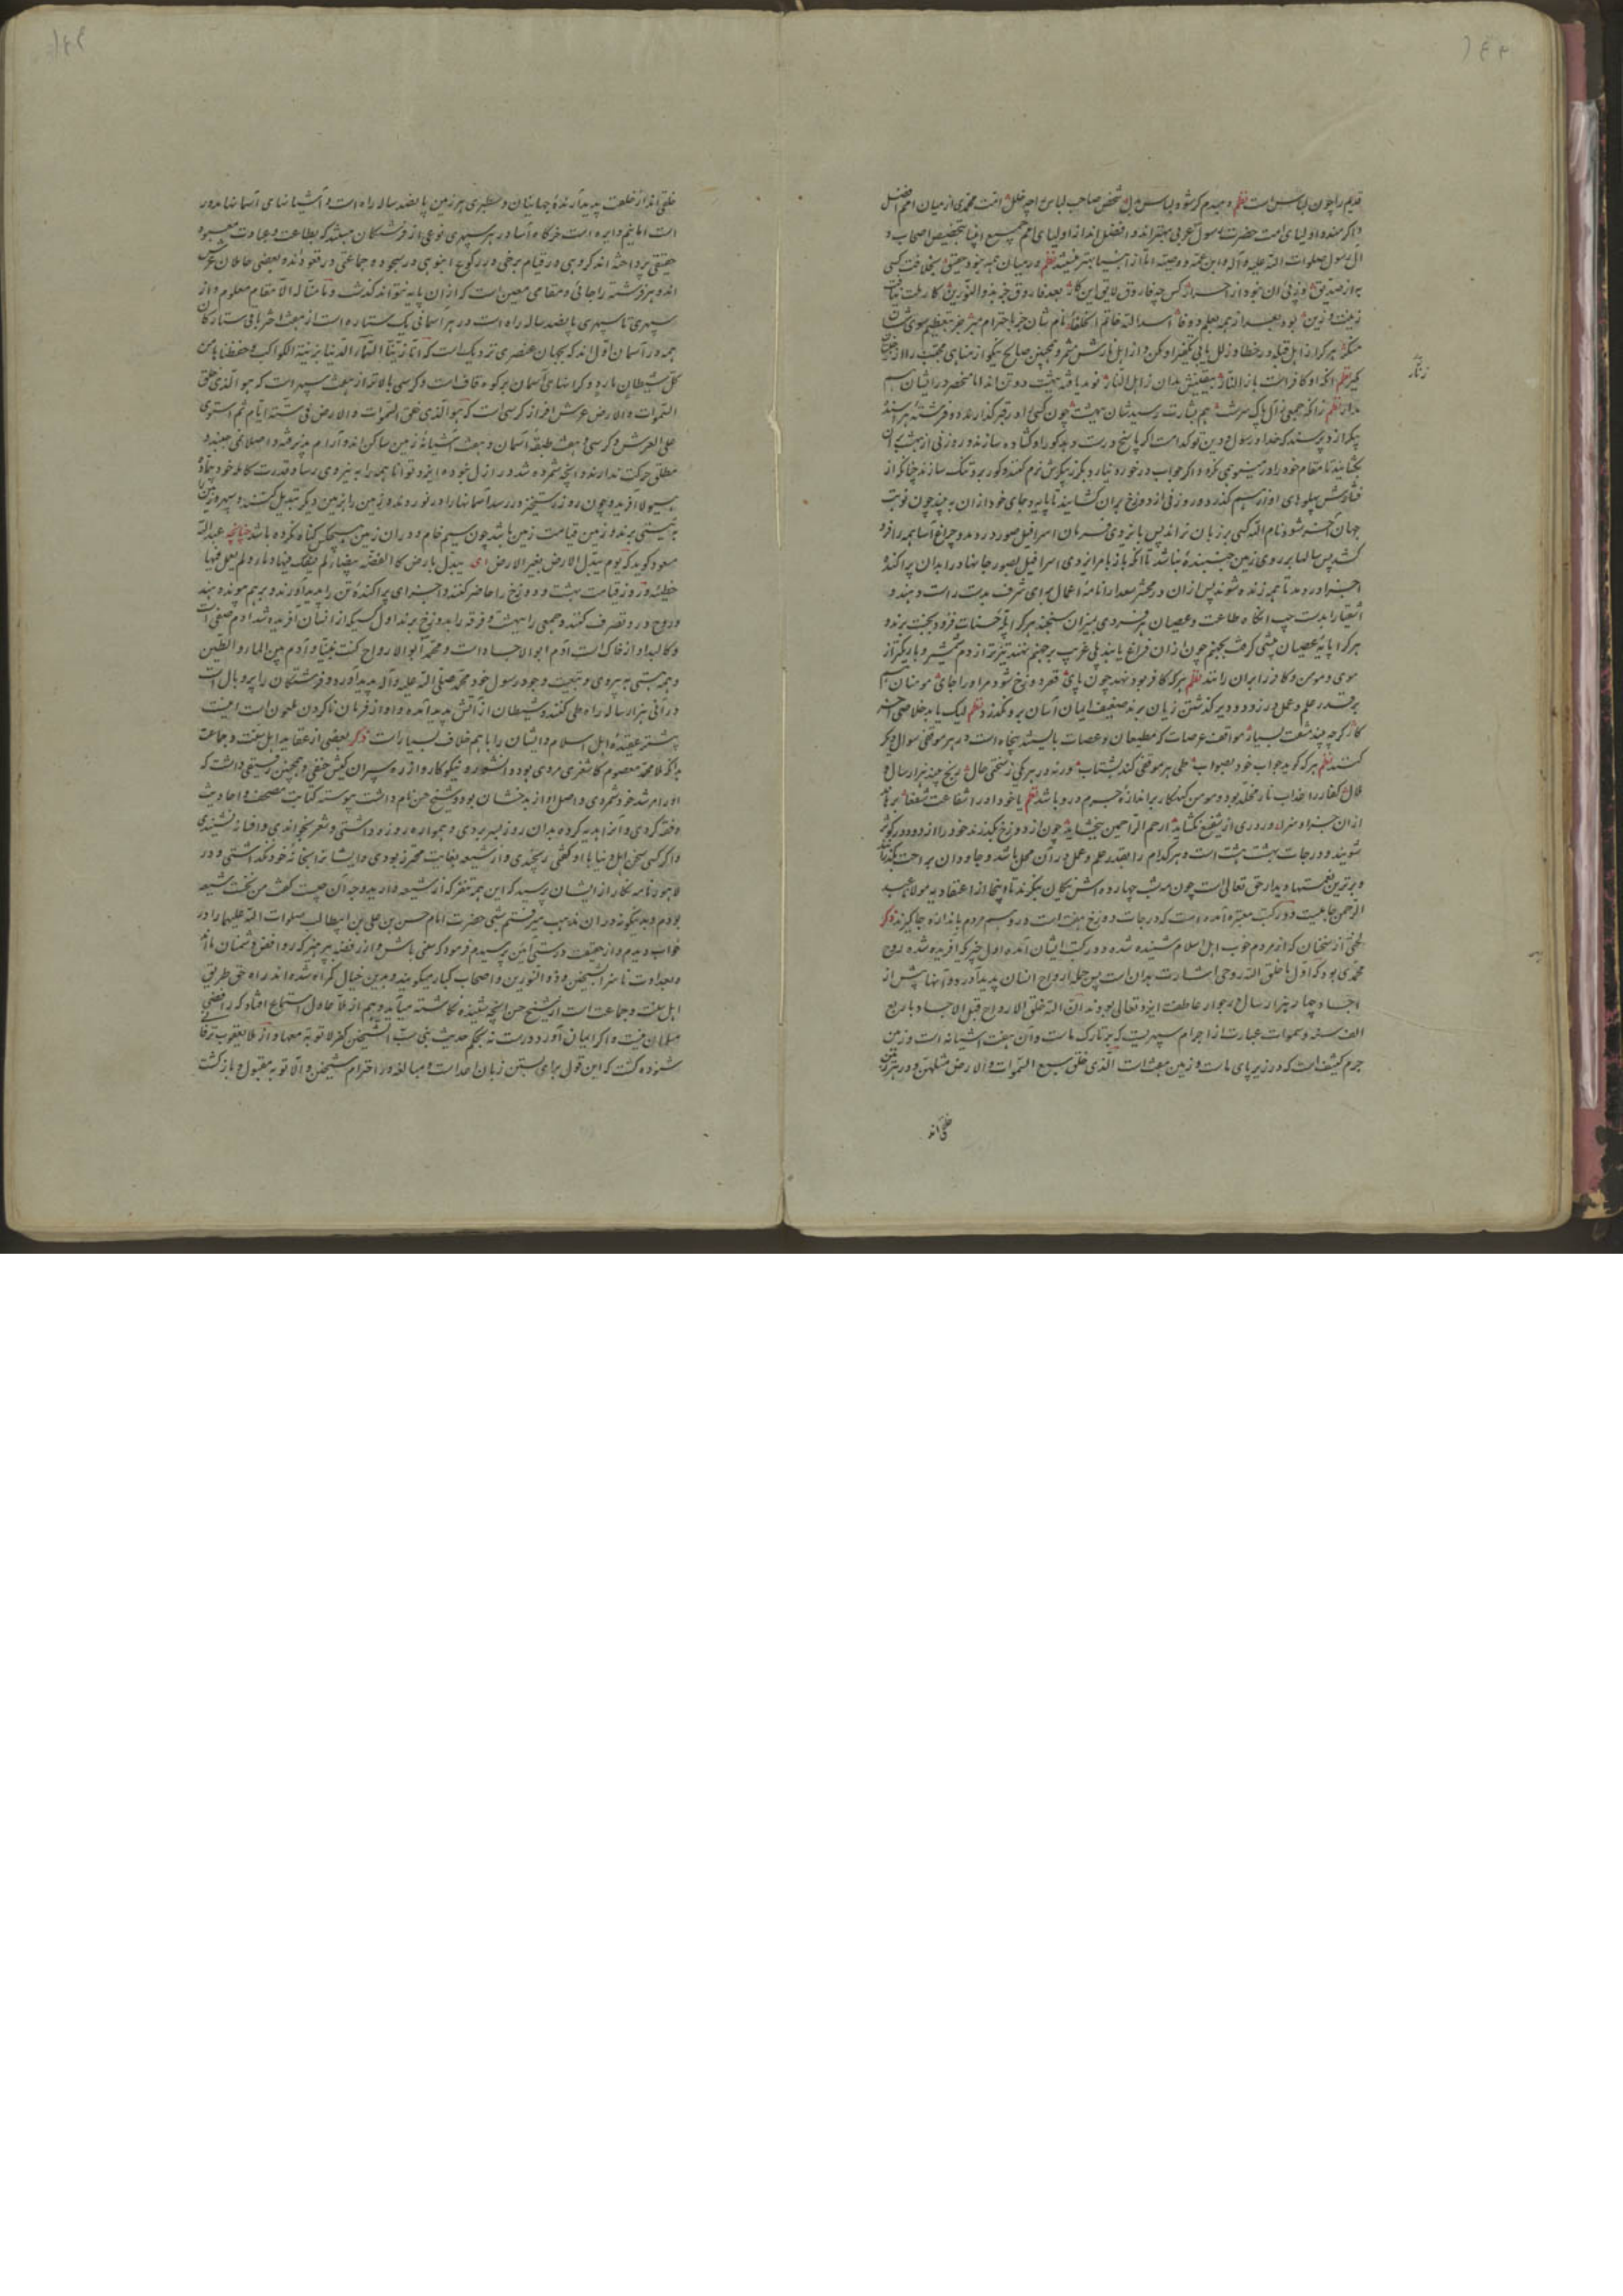 قدیم را چون لباس است نظم و مبدم کر شود لباس بدل شخص صاحب لباس را چه خلل امت محمدی از میان امم افضل
و اکرمند و اولیای امت حضرت رسول عربی بهتراند و افضل اند از اولیای امم جمیع انبیا بتخصیص اصحاب و
ال رسول صلوات الله علیه و آله
زینت و زین بود بعد از همه بعلم و وفا اسد الله خاتم الخلفا نام شان جز باحترام مبر جز بتعظیم سوی شان
منکر هر کرا از اهل قبله در خطا و زلل یابی تکفیر او مکن و از اهل نارش مشمر و همچنین صالح نیکو
زنار
کیر نظم انکه او کافر است باز النار بیقینش بدان ز اهل النار نوید یافته بهشت ده تن اند اما منحصر در ایشان
مدار نظم زانکه جمعی ز آل پاک سرشت هم بشارت رسیدشان ببهشت چون کسی را در قبر گذارند دو فرشته
پیکر از و پرسند که خدا و رسول و دین تو کدامست اکر پاسخ درست دهد کور او کشاده سازند و روزنی از بهشت بران
بکشایند تا مقام خود را در مینو همی نکرد و اکر جواب در خور نیارد بکرز پیکرش نرم کنند و کور برو تنک سازند چنانکه از
فشارش پهلوهای او از هم کذرد و روزنی از دوزخ بران کشایند تا پایه و جای خود از ان بیند چون نوبت
جهان آخر شود و نام الله کسی بر زبان نراند پس بایزدی فرمان اسرافیل صور در دمد و چراغ آسا همه را فرو
کشد پس سالها بر روی زمین جنبنده نباشد تا انکه باز بامر ایزدی اسرافیل بصور جانها در ابدان پراکنده
اجزا در دمد تا همه زنده شوند پس از ان در محشر سعدا را نامه اعمال برای شرف بدست راست دهند و
اشقیا را بدست چپ انکاه طاعت و عصیان هر فردی بمیزان سنجند هر کرا پله حسنات فزود بجنت برند و
هر کرا پایه عصیان بیشی کرفت بجهنم چون از ان فراغ یابند پلی غریب بر جهنم نهند تیزتر از دم شمشیر و باریکتر از
موی و مومن و کافر را بران رانند نظم هر که کافر بود نهد چون پای قعر دوزخ شود مر او را جای مومنان
بر قدر علم و عمل در زود و دیر کذشتن زیان برند ضعیف ایمان آسان برو نگذرد نظم لیک یابد خلاصی آخر
کار گر چه بیند مشقت بسیار مواقف عرصات که مطیعان و عصات بایستند پنجاه است در هر موقفی سوال دیکر
کنند نظم هر که کوید جواب خود بصواب طی هر موقفی کند بشتاب ورنه در هر یکی ز سختی حال رنج بیند هزار سال
ملال کفار را عذاب نار مخلد بود و مومن کنهکار بر اندازه جرم درو باشد نظم یا خود او را شفاعت شفعا برهاند
از ان جزا و سزا و روزی از شفیع نکشاید ارحم الراحمین ببخشاید چون از دوزخ بگذرند خود را از دود در کوثر
شویند و درجات بهشت هشت است و هر کدام را بقدر علم و عمل در آن محل باشد و جاودان بر احت بگذرانند
و برترین نعمتها دیدار حق تعالی است چون مه شب چهارده اش یکسان بنکرند تا اینجا از اعتقادیه مولانا عبد
الرحمن جامیست و در کتب معتبره آمده است که درجات دوزخ هفت است در و هم مردم باندازه جا گیرند ذکر
لختی از سخنان که از مردم خوب اهل اسلام شنیده شده و در کتب ایشان آمده اول چیز که آفریده شد روح
محمدی بود که اول ما خلق الله روحی اشارت بدان است پس جمله ارواح انسان پدید آورد و آنها پیش از
اجساد چهار هزار سال در جوار عاطفت ایزد تعالی بودند ان الله خلق الارواح قبل الاجساد باربع
الف سنه و سموات عبارت از اجرام سپهریست که بر تارک ماست و آن هفت اشیانه است و زمین
جرم کثیف است که در زیر پای ماست و زمین هفت است الذی خلق سبع السموات و الارض مثلهن و در هر زمین
خلقی اند
خلقی اند از خلعت پدید آرنده جهانیان و سطبری هر زمین پانصد ساله راه است و آشیانهای آسمانها مدور
است اما نیم دایره است خرکاه آسا و در هر سپهری نوعی از فرشتکان هستند که بطاعت و عبادت معبود
حقیقی پرداخته اند کروهی در قیام برخی در رکوع انبوهی در سجود و جماعتی در قعودند و بعضی حاملان عرش
اند و هر فرشته را جائی و مقامی معین است که از ان پایه نتواند کذشت و ما منا الا له مقام معلوم و از
سپهری تا سپهری پانصد ساله راه است و در هر آسمانی یک ستاره است از هفت اختر باقی ستارکان
همه در آسمان اول اند که بجهان عنصری نزدیک است که انا زینا السماء الدنیا بزینة الکواکب و حفظناها من
کل شیطان مارد و کرانهای آسمان بر کوه قاف است و کرسی بالاتر از هفت سپهر است که هو الذی خلق
السموات و الارض عرش افراز کرسی است که هو الذی خلق السموات و الارض فی ستة ایام ثم استوی
علی العرش و کرسی و هفت طبقه آسمان و هفت اشیانه زمین ساکن اند و آرام پذیرفته و اصلا نمی جنبند و
مطلق حرکت ندارند و انچه شمرده شد در ازل نبوده ایزد توانا همه را به نیروی رسا و قدرت کامله خود بی ماده
و هیولا آفرید و چون روز رستخیز در رسد آسمانها را در نوردند و زمین را بزمین دیکر تبدیل کنند
به نیستی برند و زمین قیامت زمین باشد چون سیم خام و در ان زمین هیچکس کناه نکرده باشد چنانچه عبدالله
مسعود کوید که یوم تبدل الارض بغیر الارض ای تبدل بارض کالفضه بیضاء لم یسفک فیها دماء و لم یعمل فیها
خطیئة و روز قیامت بهشت و دوزخ را حاضر کنند و اجزای پراکنده تن را پدید آورند و بر هم پیوند دهند
و روح در و تصرف کنند و جمعی را ببهشت و فرقه را بدوزخ برند اول کسیکه از انسان آفریده شد آدم صفی است
و کالبد او از خاک است آدم ابو الاجساد است و محمد ابو الارواح کنت نبیا و آدم بین الماء و الطین
و همه هستی به پیروی و تبعیت وجود رسول خود محمد صلی الله علیه و آله پدید آورد و فرشتکان را پر و بال است
در آنی هزار ساله راه طی کنند و شیطان از آتش پدید آمده و او از فرمان ناکردن ملعون است اینست
بیشتر عقیده اهل اسلام و ایشان را با هم خلاف بسیار است ذکر بعضی از عقاید اهل سنت و جماعت
بدانکه ملا محمد معصوم کاشغری مردی بود دانشور و نیکوکار و از ره سپران کیش حنفی و همچنین رفیقی داشت که
او را مرشد خود شمردی و اصل او از بدخشان بود و شیخ حسن نام داشت پیوسته کتابت مصحف و احادیث
و فقه کردی و آنرا هدیه کرده بدان روز بسر بردی و همواره روزه داشتی و شعر نخواندی و افسانه نشنیدی
و اکر کسی سخن اهل دنیا با او گفتی رنجیدی و از شیعه بغایت محترز بودی و ایشانرا بخانه خود نگذاشتی و در
لاهور نامه نکار از ایشان پرسید که این همه تنفر که از شیعه دارید وجه آن چیست کفت من نخست شیعه
بودم و بدینگونه در ان مذهب میرفتم شبی حضرت امام حسن بن علی بن ابیطالب صلوات الله علیهما را در
خواب دیدم و از حقیقت درستی آئین پرسیدم فرمود که سنی باش و از رفضه بپرهیز که روافض دشمنان ما اند
و بعداوت ناسزا بشیخین و ذو النورین و اصحاب کبار میکویند و بدین خیال کمراه شده اند راه حق طریق
اهل سنت و جماعت است از شیخ حسن انچه شنیده نکاشته میآید و هم از ملا عادل استماع افتاد که رافضی
مسلمان نیست و اکر ایمان آورد درست نه بحکم حدیث نبی سب الشیخین کفر لا توبة معها و از ملا یعقوب ترفانی
شنوده کشت که این قول برای بستن زبان اعدا است و مبالغه در احترام شیخین و الا توبه مقبول و بازکشت